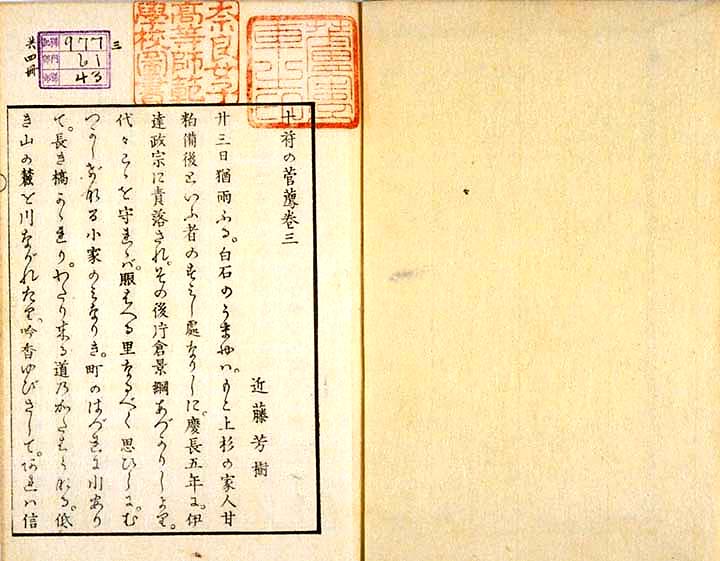 奈良女子
高等師範
學校圖書
三
977
61
43
共四冊
十符の菅薦卷三
近藤芳樹
廿三日猶雨ふる。白石のうまやハ。もと上杉の家人甘
粕備後といふ者のすみし處なりしに。慶長五年に。伊
達政宗に責落され。その後片倉景綱あづかりしより。
代々こゝを守れゝバ。賑はへる里なるべく思ひしに。む
つかしげなる小家のみなりき。町のはづれに川あり
て。長き橋かゝれり。わたり来る道のかたはらなる。低
き山の麓を川ながれたり。吟香ゆびさして。あれハ信